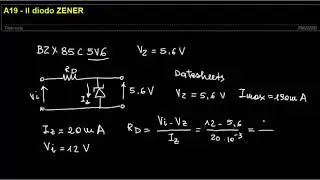 A19 - Il diodo ZENER
BZX85C 5V6
V_Z = 5,6V
R_D
I_Z
V_i
5,6V
Datasheets
V_Z = 5,6V I_max = 190mA
I_Z = 20mA
V_i = 12V
R_D = (V_i - V_Z) / I_Z = (12 - 5,6) / (20·10^-3) =